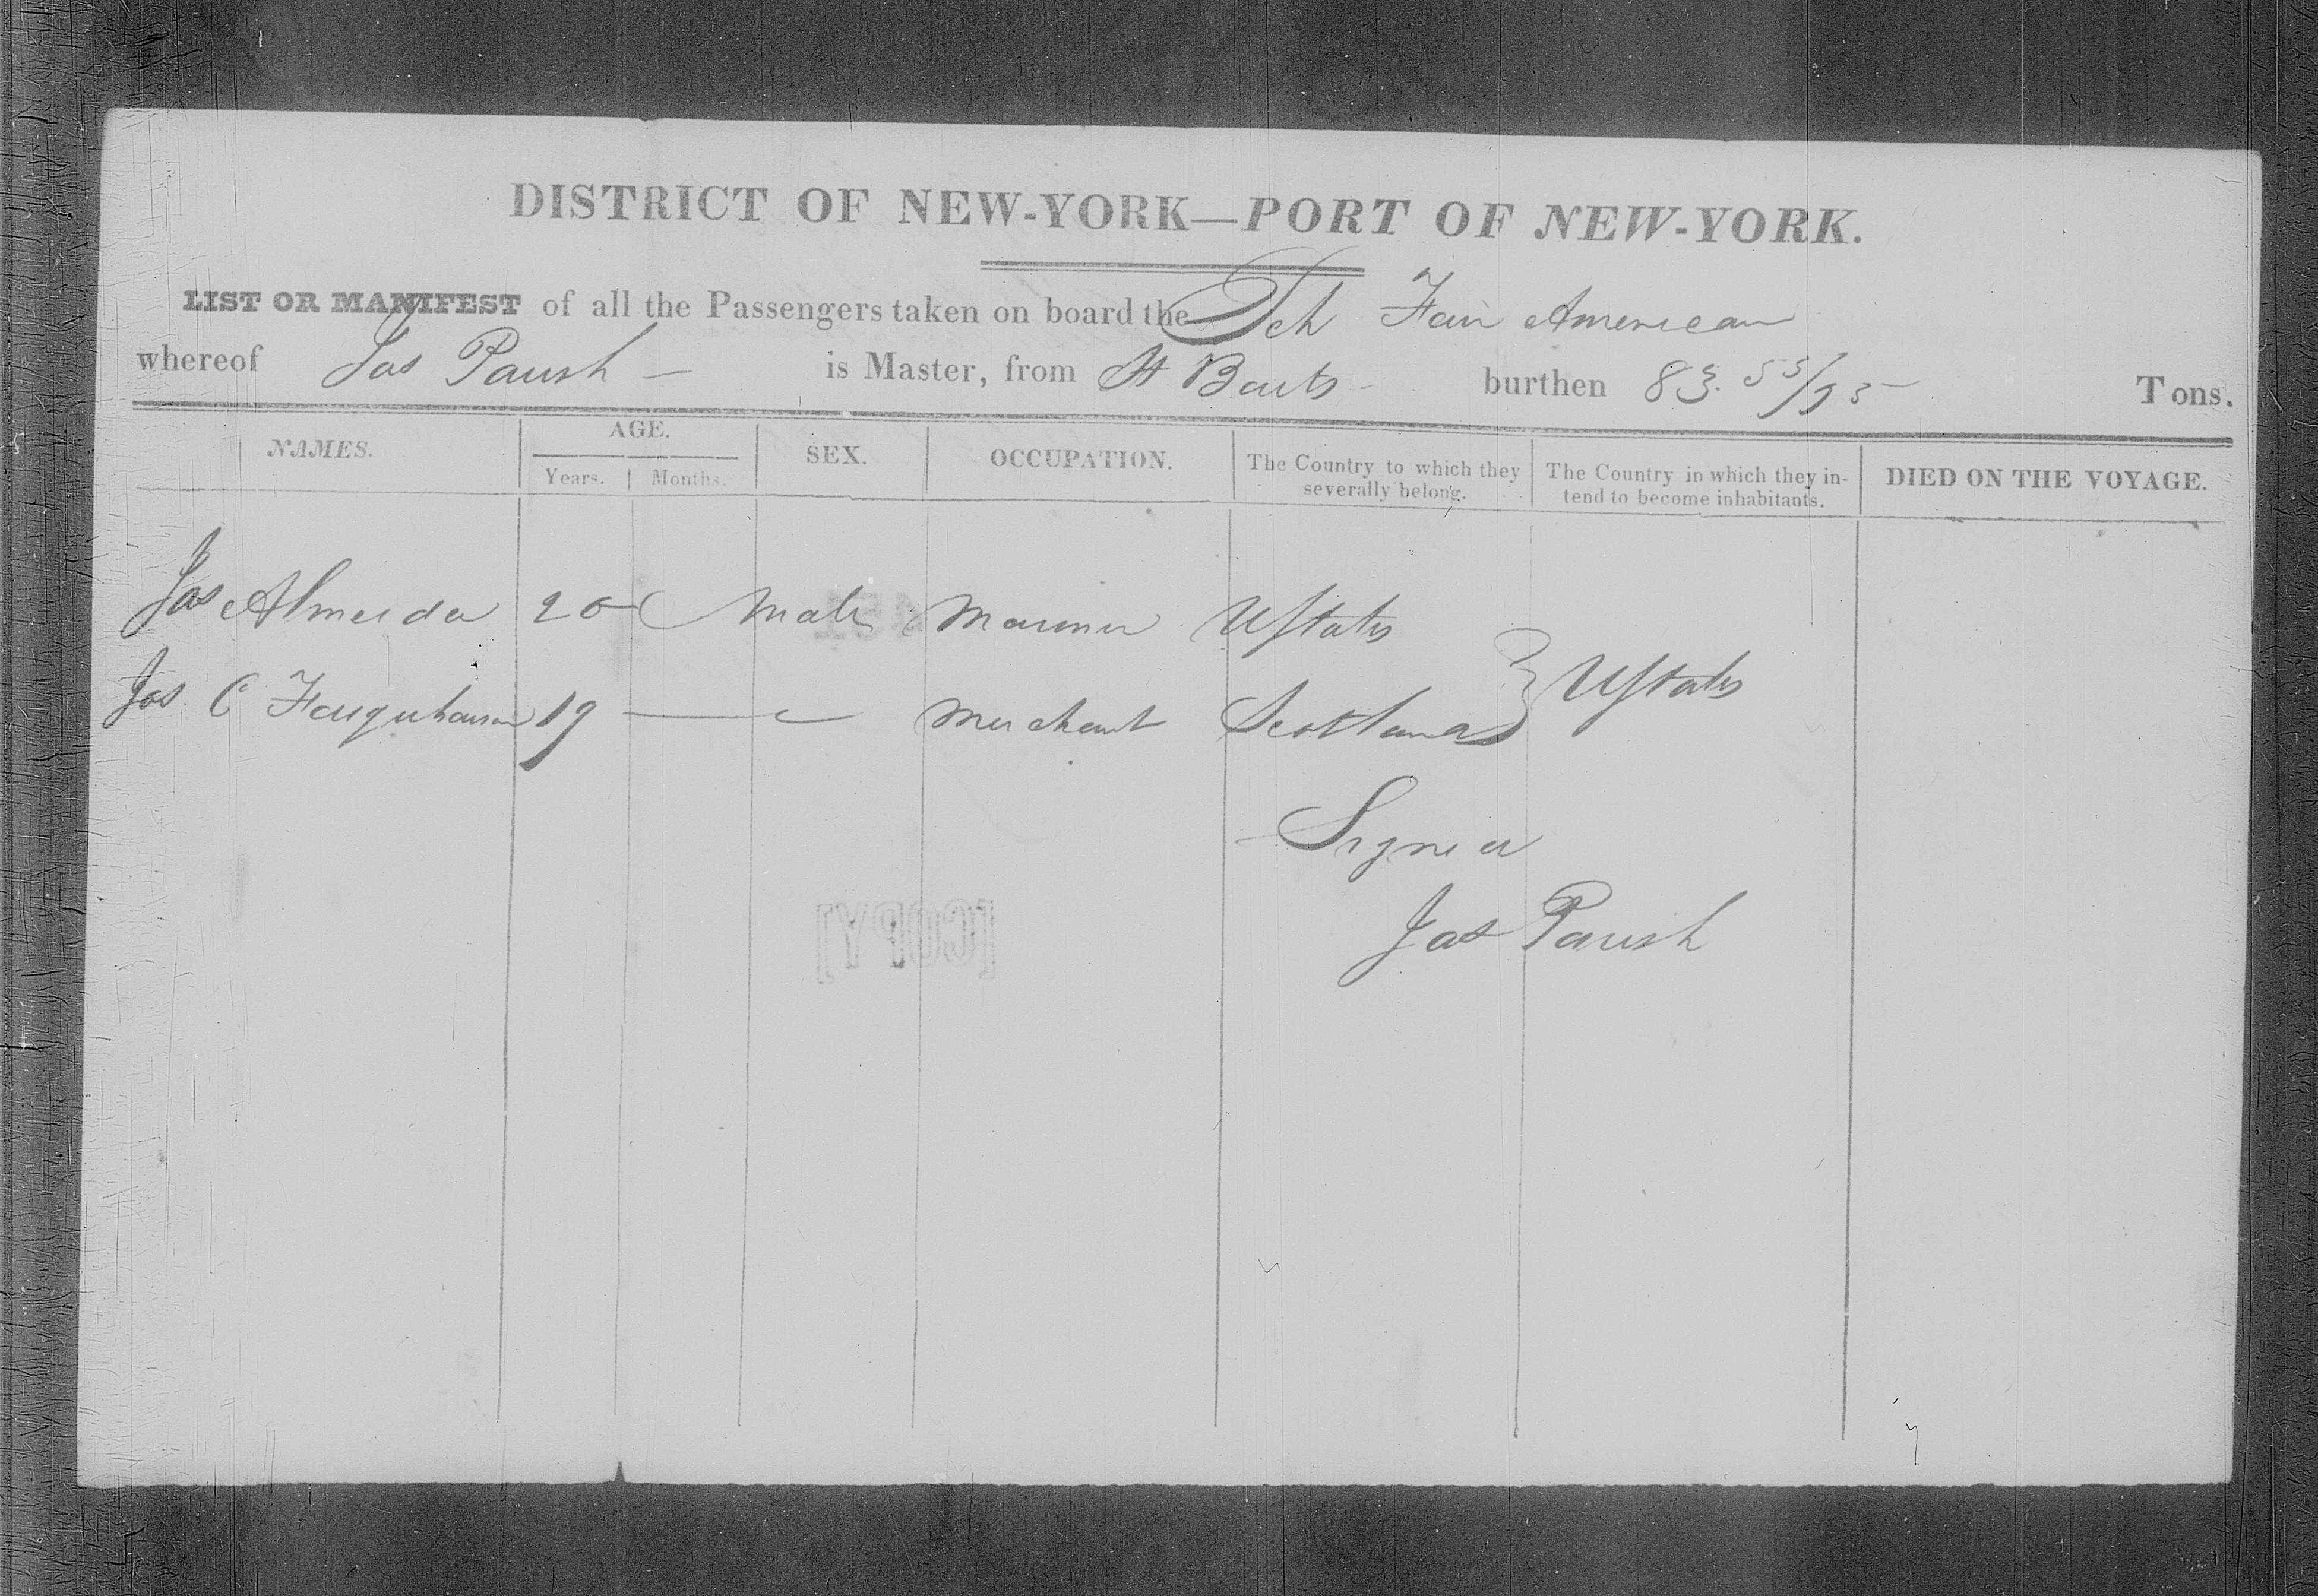 DISTRICT OF NEW-YORK—PORT OF NEW-YORK.
LIST OR MANIFEST of all the Passengers taken on board the Sch Fair American
whereof Jas Parish — is Master, from St Barts - burthen 83. 53/95 Tons.
NAMES. AGE. SEX. OCCUPATION. The Country to which they severally belong. The Country in which they intend to become inhabitants. DIED ON THE VOYAGE.
Years. Months.
Jas Almeida 20 Male Mariner UStates
Jas. C Farquharson 19 — Merchant Scotland } UStates
Signed
Jas Parish
[COPY]